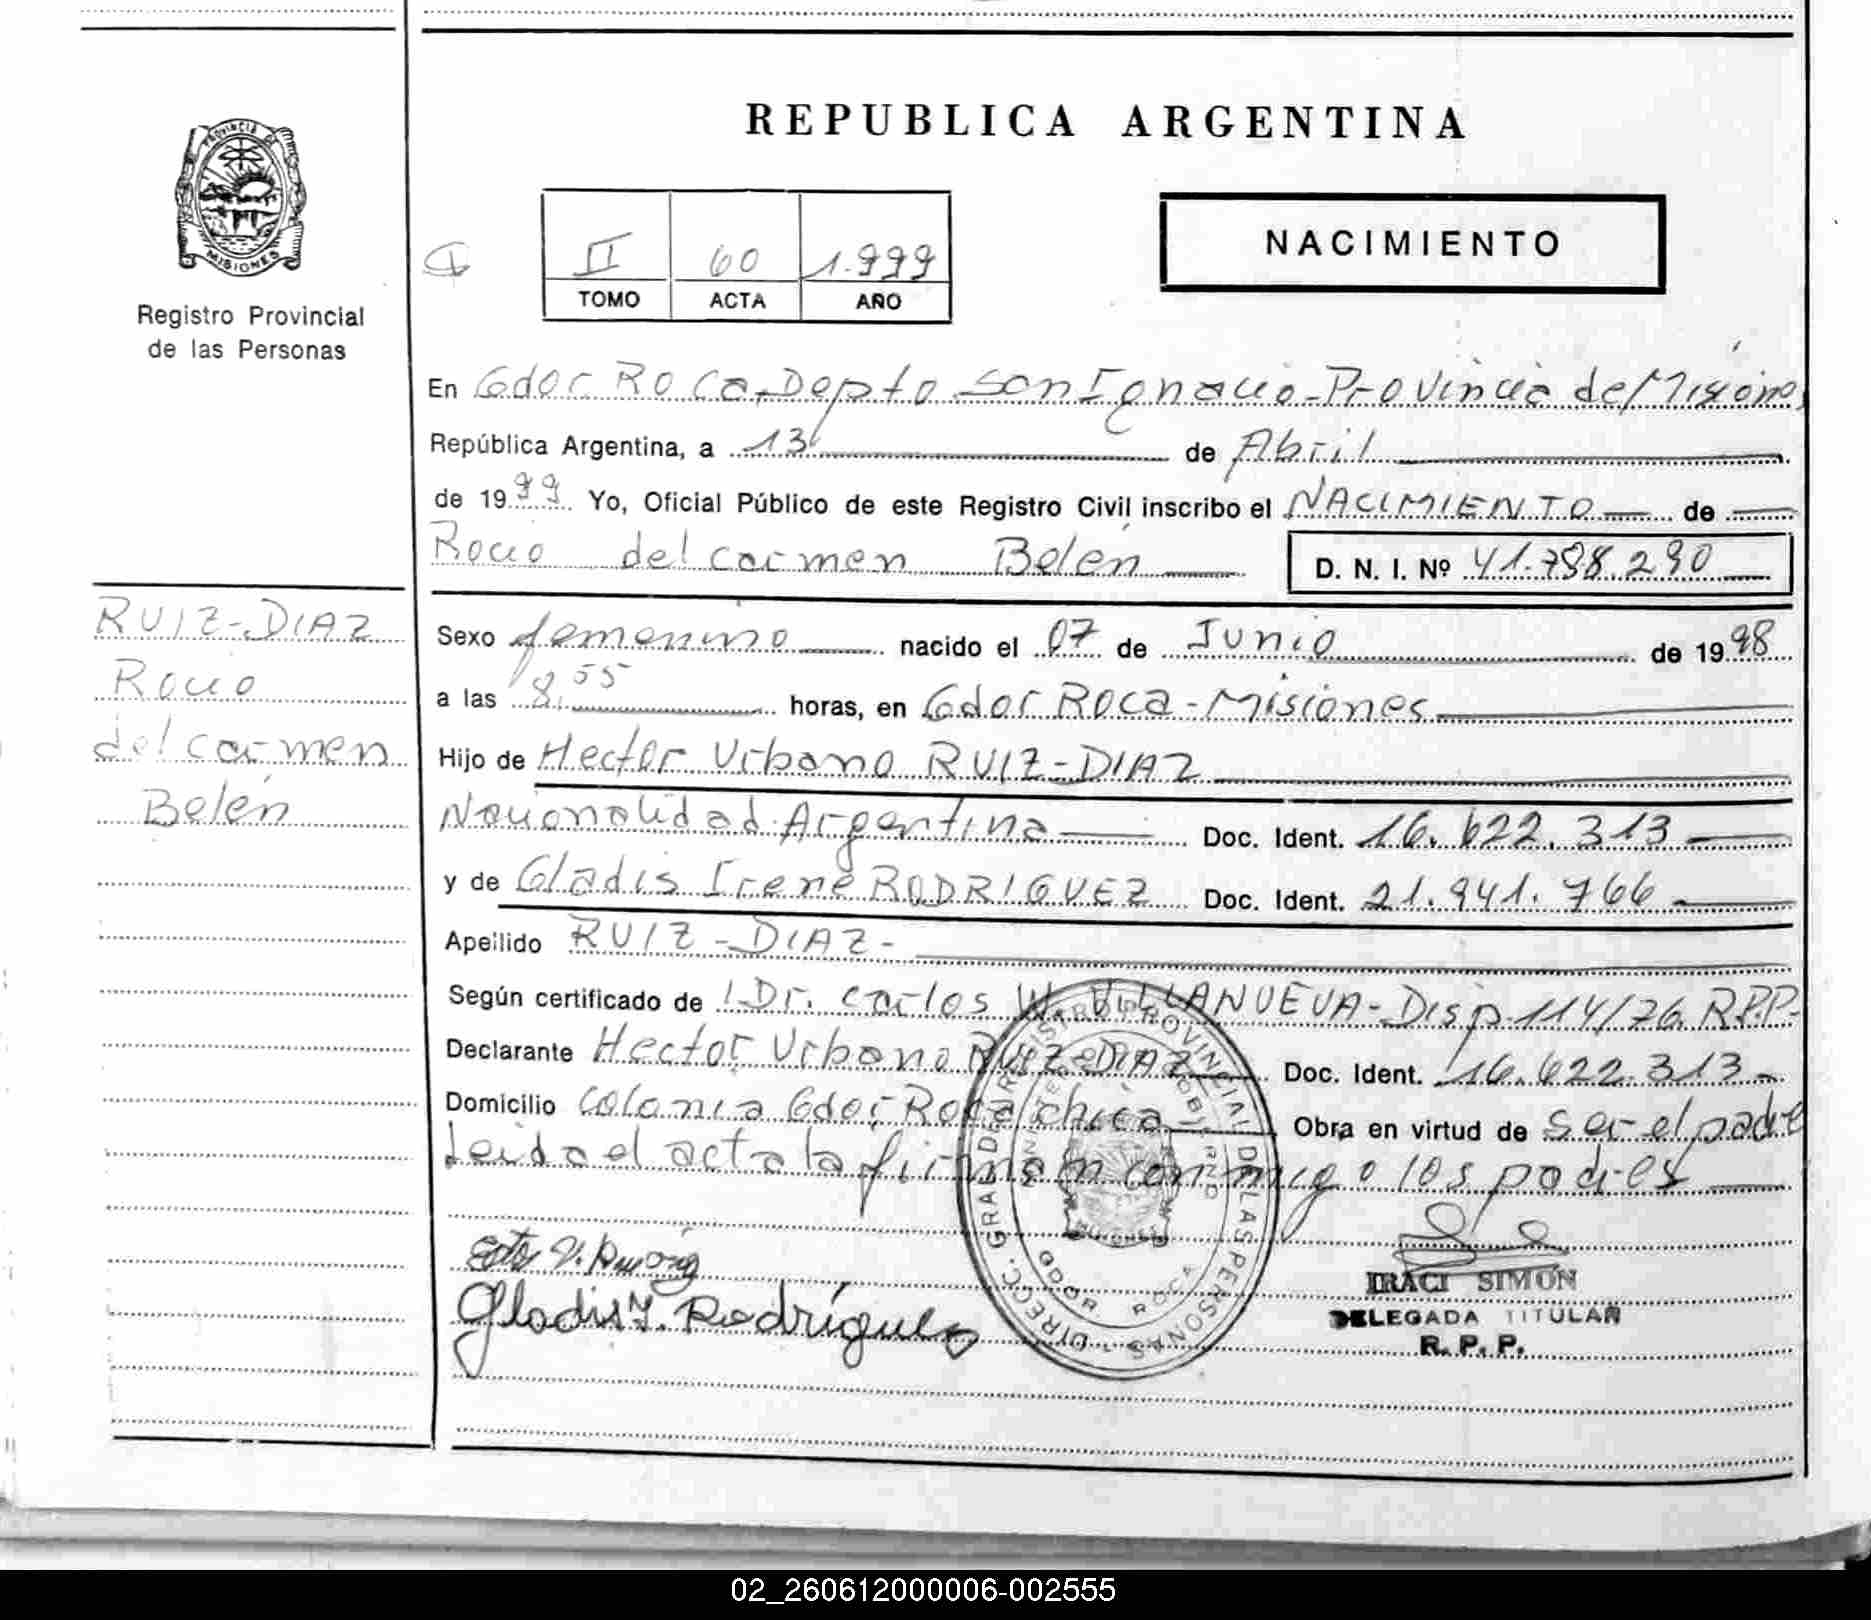 REPUBLICA ARGENTINA
PROVINCIA DE MISIONES
Registro Provincial
de las Personas
II 60 1.999
TOMO ACTA AÑO
NACIMIENTO
En Gdor Roca, Depto San Ignacio - Provincia de Misiones
República Argentina, a 13 de Abril
de 1999 Yo, Oficial Público de este Registro Civil inscribo el NACIMIENTO de
Rocio del carmen Belén D. N. I. Nº 41.798.290
RUIZ-DIAZ
Rocio
del carmen
Belén
Sexo femenino nacido el 07 de Junio de 1998
a las 8,55 horas, en Gdor Roca - Misiones
Hijo de Hector Urbano RUIZ-DIAZ
Nacionalidad Argentina Doc. Ident. 16.622.313
y de Gladis Irene RODRIGUEZ Doc. Ident. 21.941.766
Apellido RUIZ-DIAZ-
Según certificado de Dr. Carlos W. VILLANUEVA - Disp 114/76 R.P.P-
Declarante Hector Urbano RUIZ-DIAZ Doc. Ident. 16.622.313-
Domicilio Colonia Gdor Roca chica Obra en virtud de ser el padre
Leida el acta la firman conmigo los padres
DIREC. GRAL. DE REGISTRO PROVINCIAL DE LAS PERSONAS
GDOR ROCA
MISIONES
Gladis I. Rodríguez
IRACI SIMON
DELEGADA TITULAR
R. P. P.
02_260612000006-002555